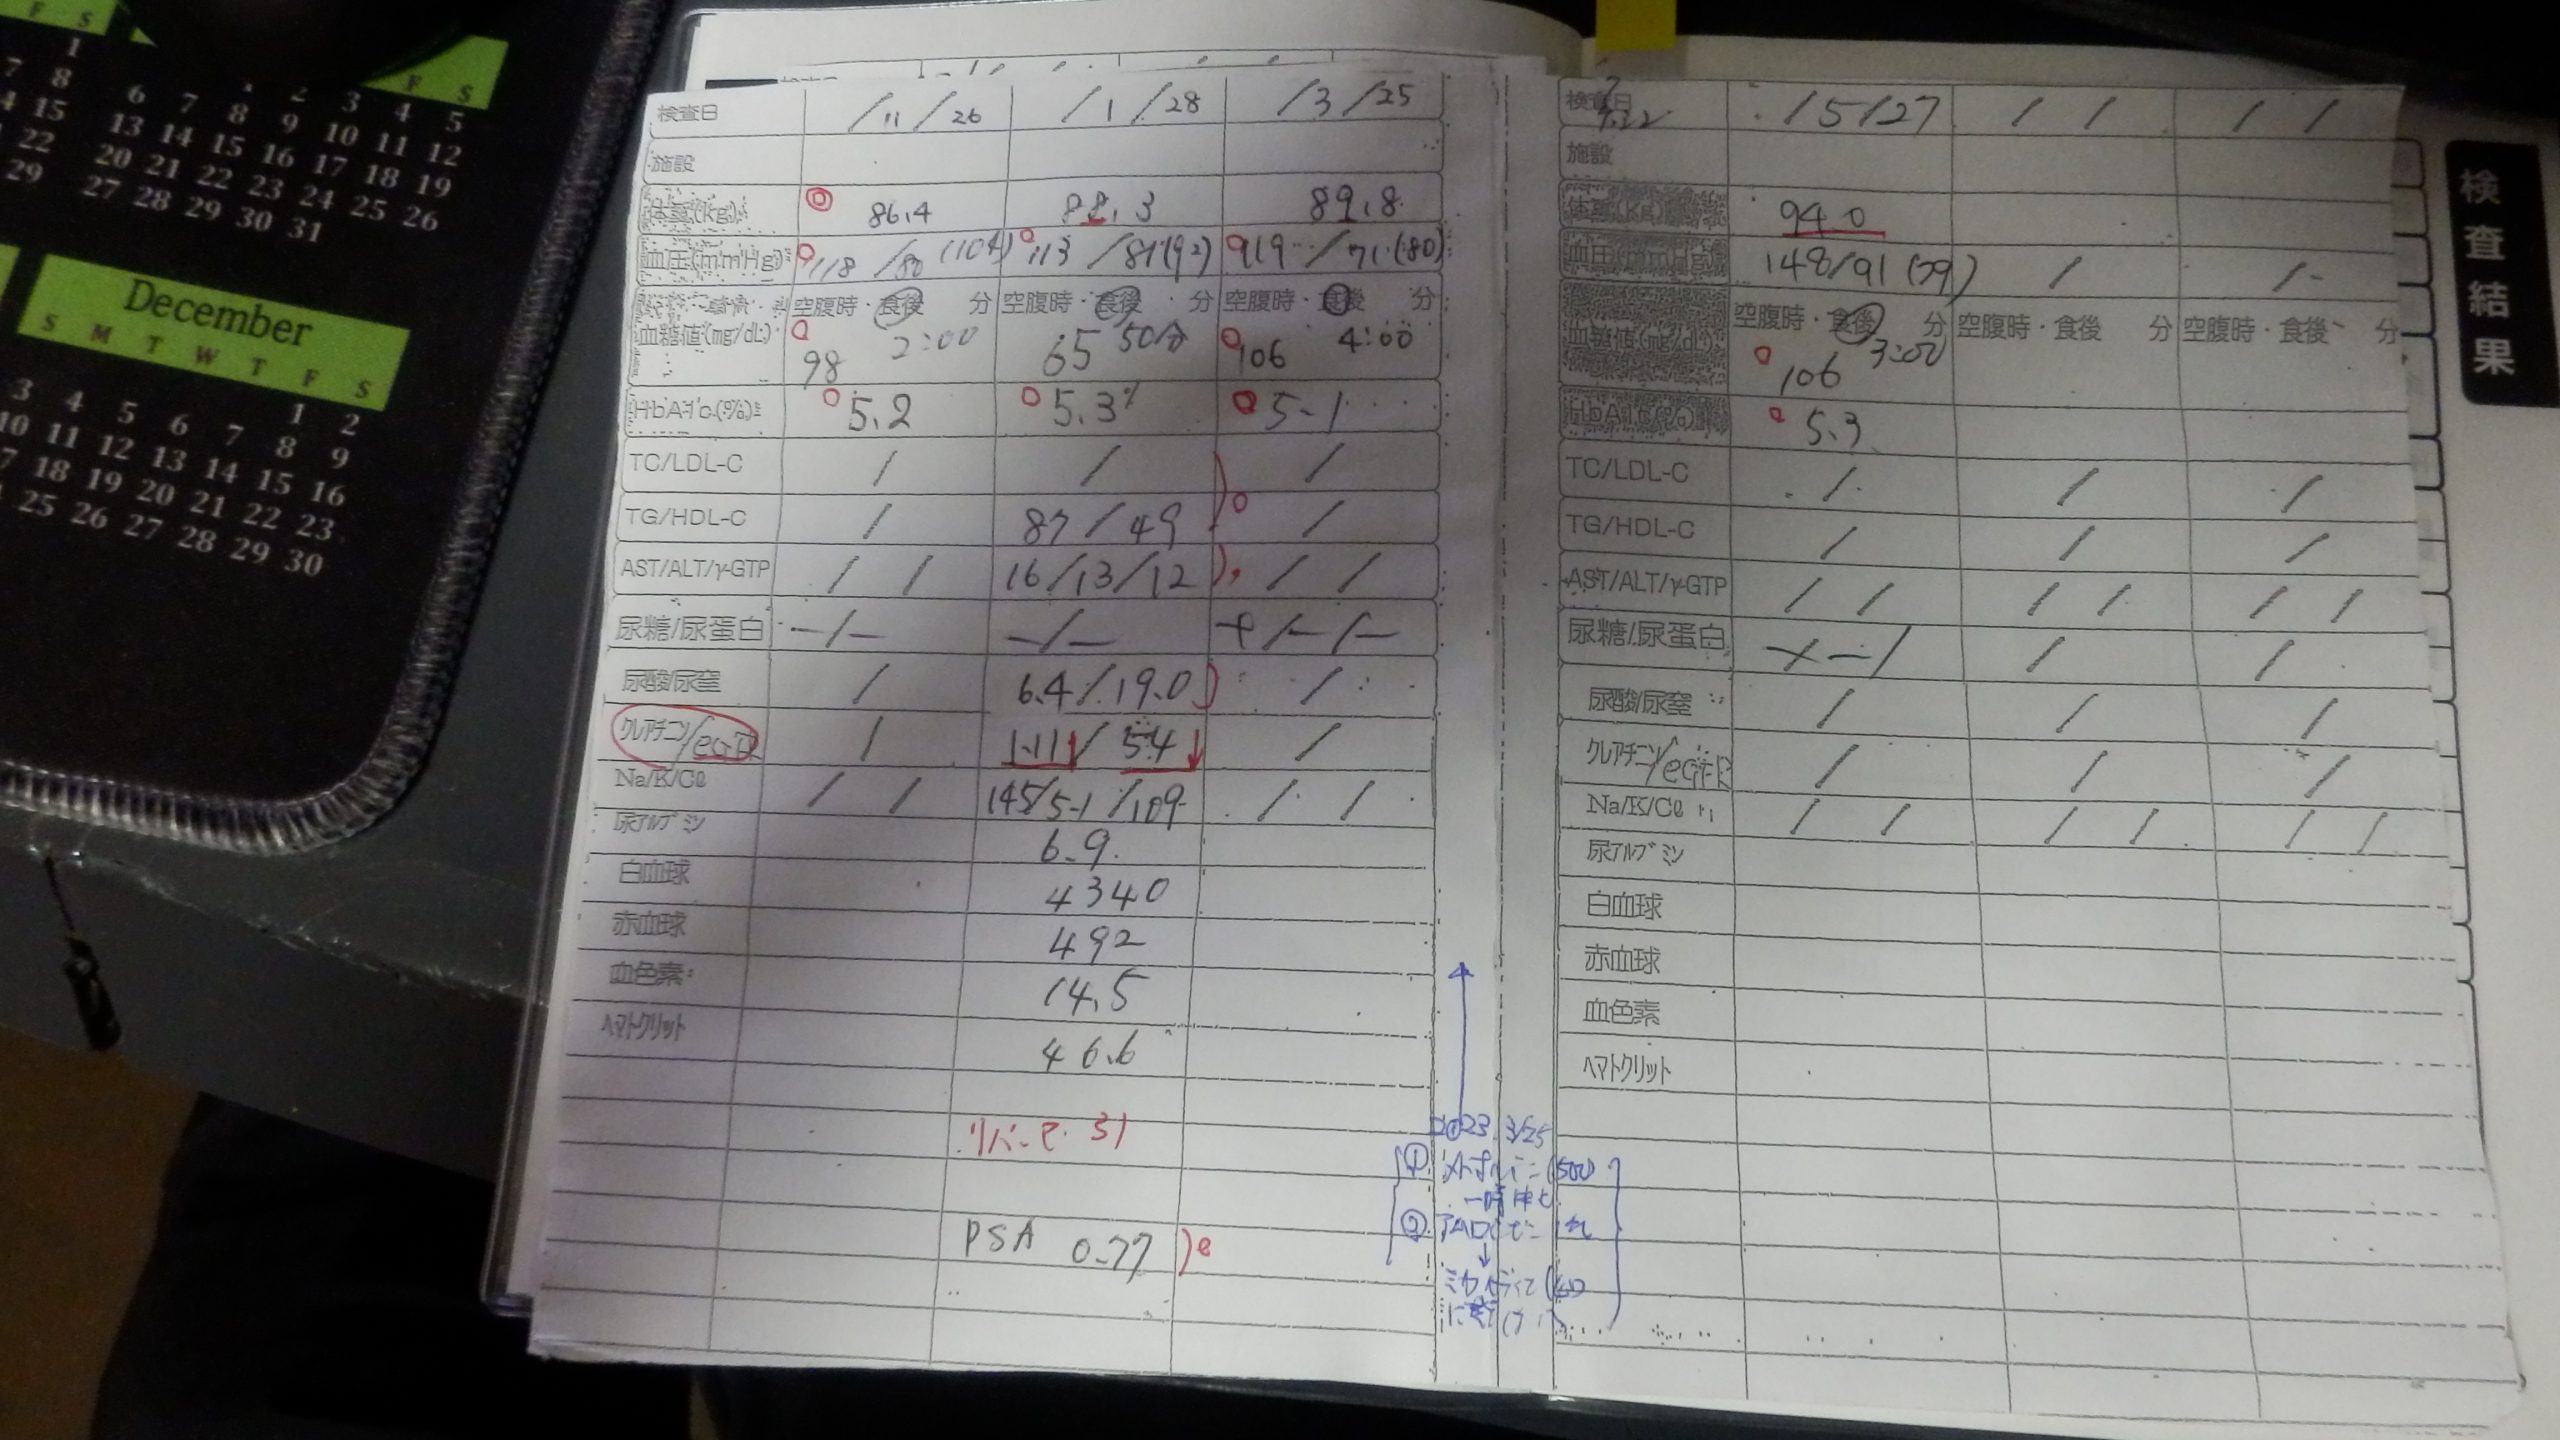 F S
1
7 8
14 15
22
29
F S
1 2 3 4 5
6 7 8 9 10 11 12
13 14 15 16 17 18 19
20 21 22 23 24 25 26
27 28 29 30 31
December
S M T W T F S
1 2
3 4 5 6 7 8 9
10 11 12 13 14 15 16
17 18 19 20 21 22 23
25 26 27 28 29 30
検査日 /11/26 /1/28 /3/25
施設
体重(kg) 86.4 88.3 89.8
血圧(mmHg) 118/80(104) 113/81(92) /71(80)
空腹時・食後 分 空腹時・食後 分 空腹時・食後 分
血糖値(mg/dL) 98 2:00 65 50分 106 4:00
HbA1c(%) 5.2 5.3% 5.1
TC/LDL-C / / /
TG/HDL-C / 87/49 /
AST/ALT/γ-GTP / / 16/13/12 / /
尿糖/尿蛋白 -/- -/- +/-/-
尿酸/尿窒 / 6.4/19.0 /
クレアチニン/eGFR / 1.11/54↓ /
Na/K/Cl / / 145/5.1/109 / /
尿アルブミン 6.9
白血球 4340
赤血球 492
血色素 14.5
ヘマトクリット 46.6
31
PSA 0.77
2023 3/25
① (500)
一時中止
②
↓
検査日 /5/27 / / / /
施設
体重(kg) 94.0
血圧(mmHg) 148/91(79) / /
空腹時・食後 分 空腹時・食後 分 空腹時・食後 分
血糖値(mg/dL) 106 3:00
HbA1c(%) 5.3
TC/LDL-C / / /
TG/HDL-C / / /
AST/ALT/γ-GTP / / / / / /
尿糖/尿蛋白 / /
尿酸/尿窒 / / /
クレアチニン/eGFR / / /
Na/K/Cl / / / / / /
尿アルブミン
白血球
赤血球
血色素
ヘマトクリット
検査結果